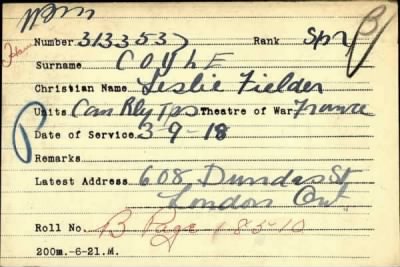 B
Number 3133537 Rank Spr
Surname COYLE
Christian Name Leslie Fielder
Units Can Rly Tps Theatre of War France
Date of Service 3-9-18
Remarks
Latest Address 608 Dundas St
London Ont
Roll No. B Page 18510
200m.-6-21.M.